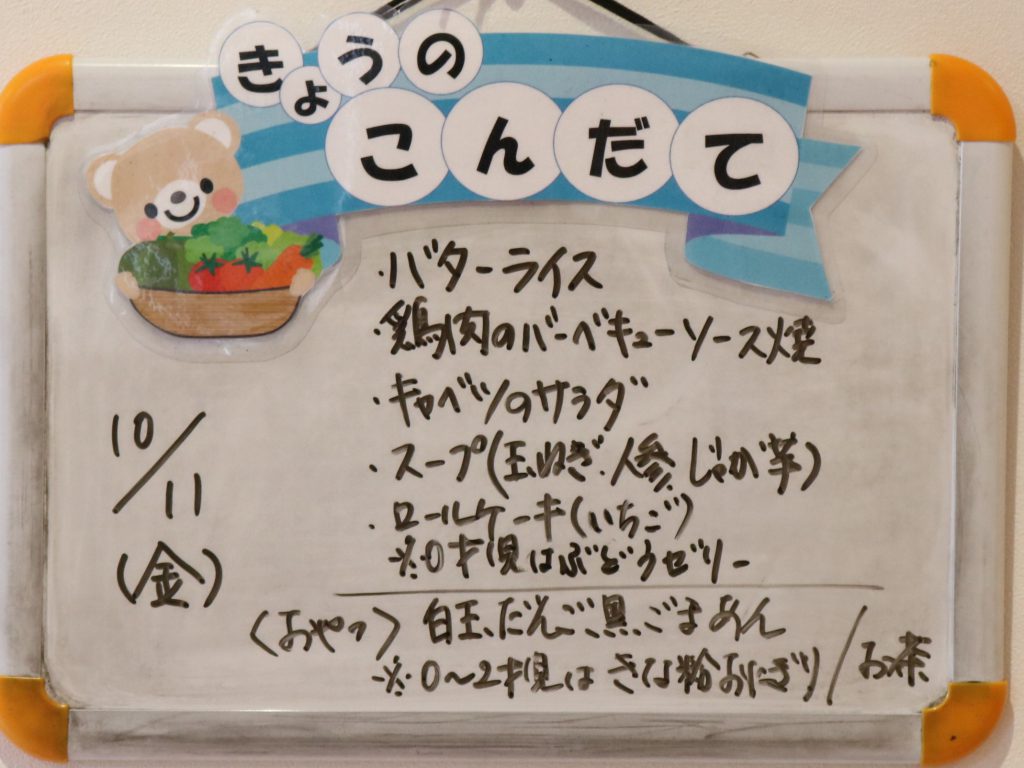 きょうの
こんだて
10/11
(金)
・バターライス
・鶏肉のバーベキューソース焼
・キャベツのサラダ
・スープ(玉ねぎ・人参、じゃが芋)
・ロールケーキ(いちご)
※0才児はぶどうゼリー
〈おやつ〉 白玉だんご黒ごまあん
※0〜2才児は きな粉おにぎり/お茶